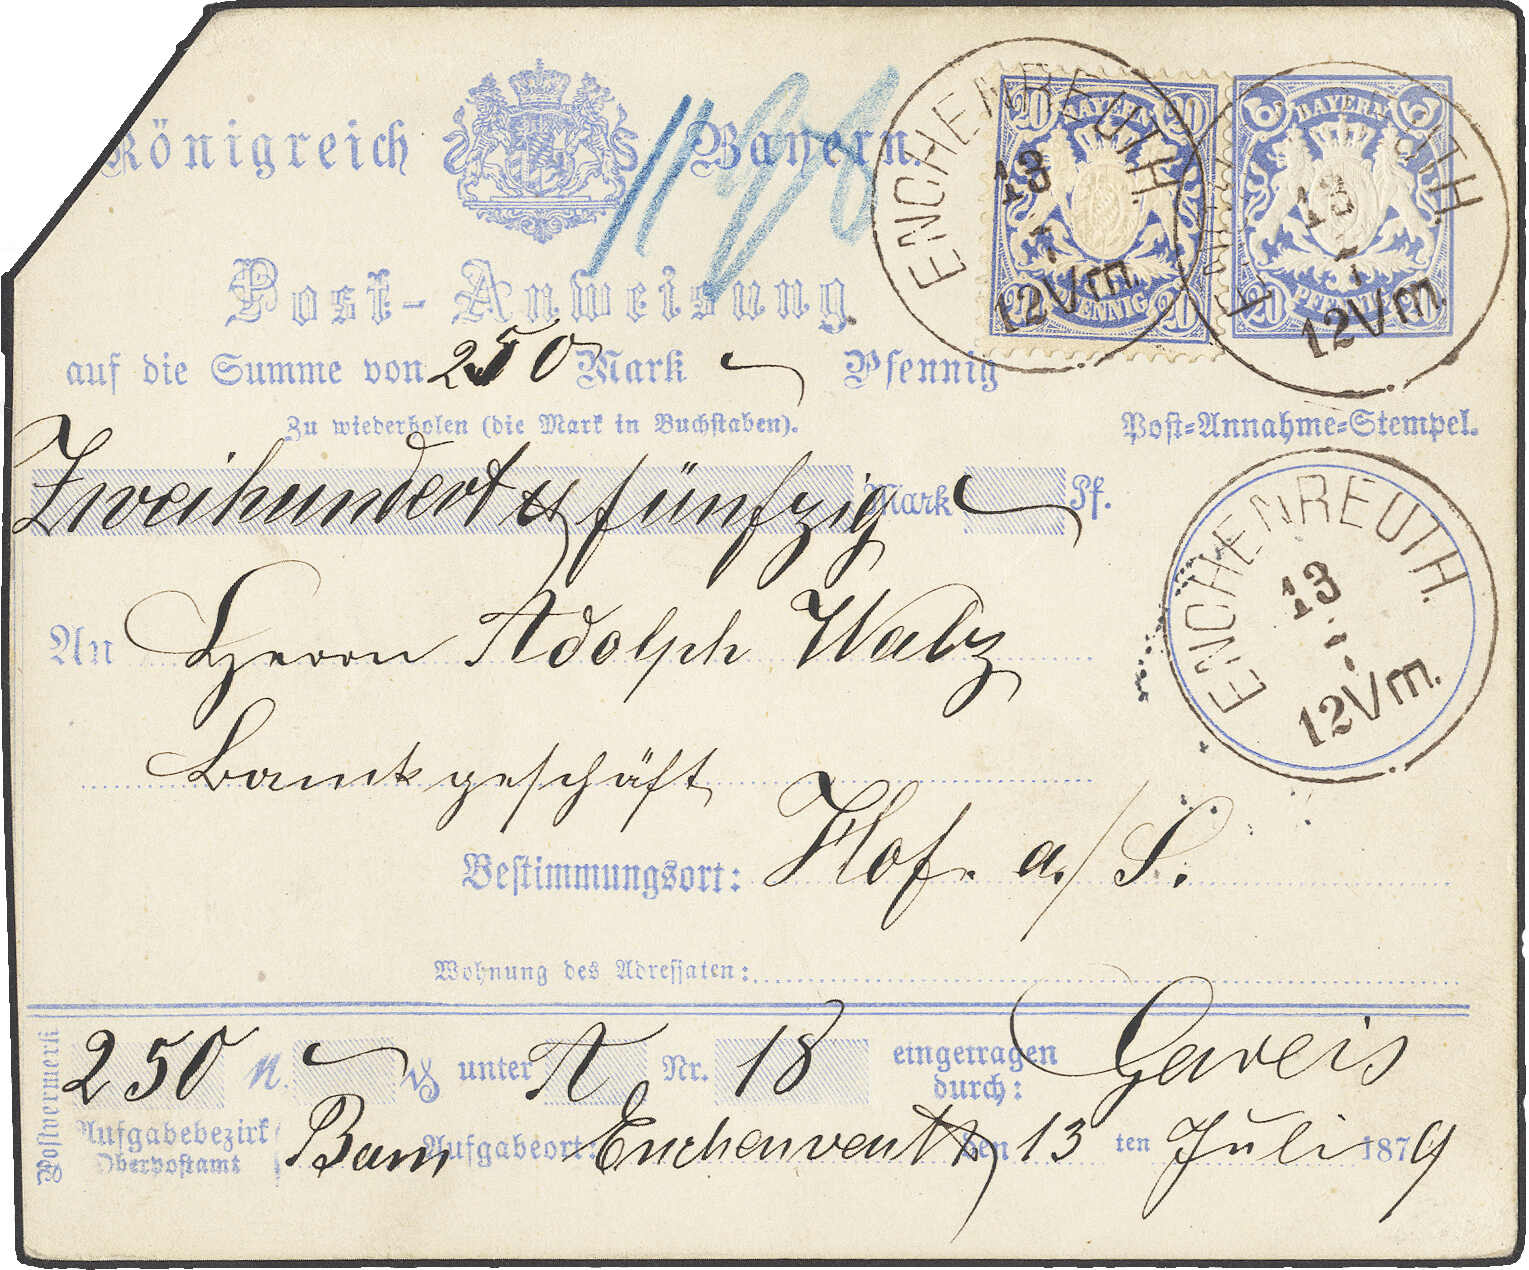 Königreich Bayern.
Post-Anweisung
auf die Summe von 250 Mark Pfennig
Zu wiederholen (die Mark in Buchstaben).
Zweihundert u fünfzig Mark Pf.
An Herrn Adolph Walz
Bankgeschäft
Bestimmungsort: Hof. a./S.
Wohnung des Adressaten:
Postvermerk
250 M. ₰ unter A Nr. 18 eingetragen durch: Gareis
Aufgabebezirk Oberpostamt Bam Aufgabeort: Enchenreuth den 13 ten Juli 1879
20 BAYERN 20
20 PFENNIG 20
BAYERN
20 PFENNIG
ENCHENREUTH.
13
7
12Vm.
ENCHENREUTH.
13
7
12Vm.
Post-Annahme-Stempel.
ENCHENREUTH.
13
12Vm.